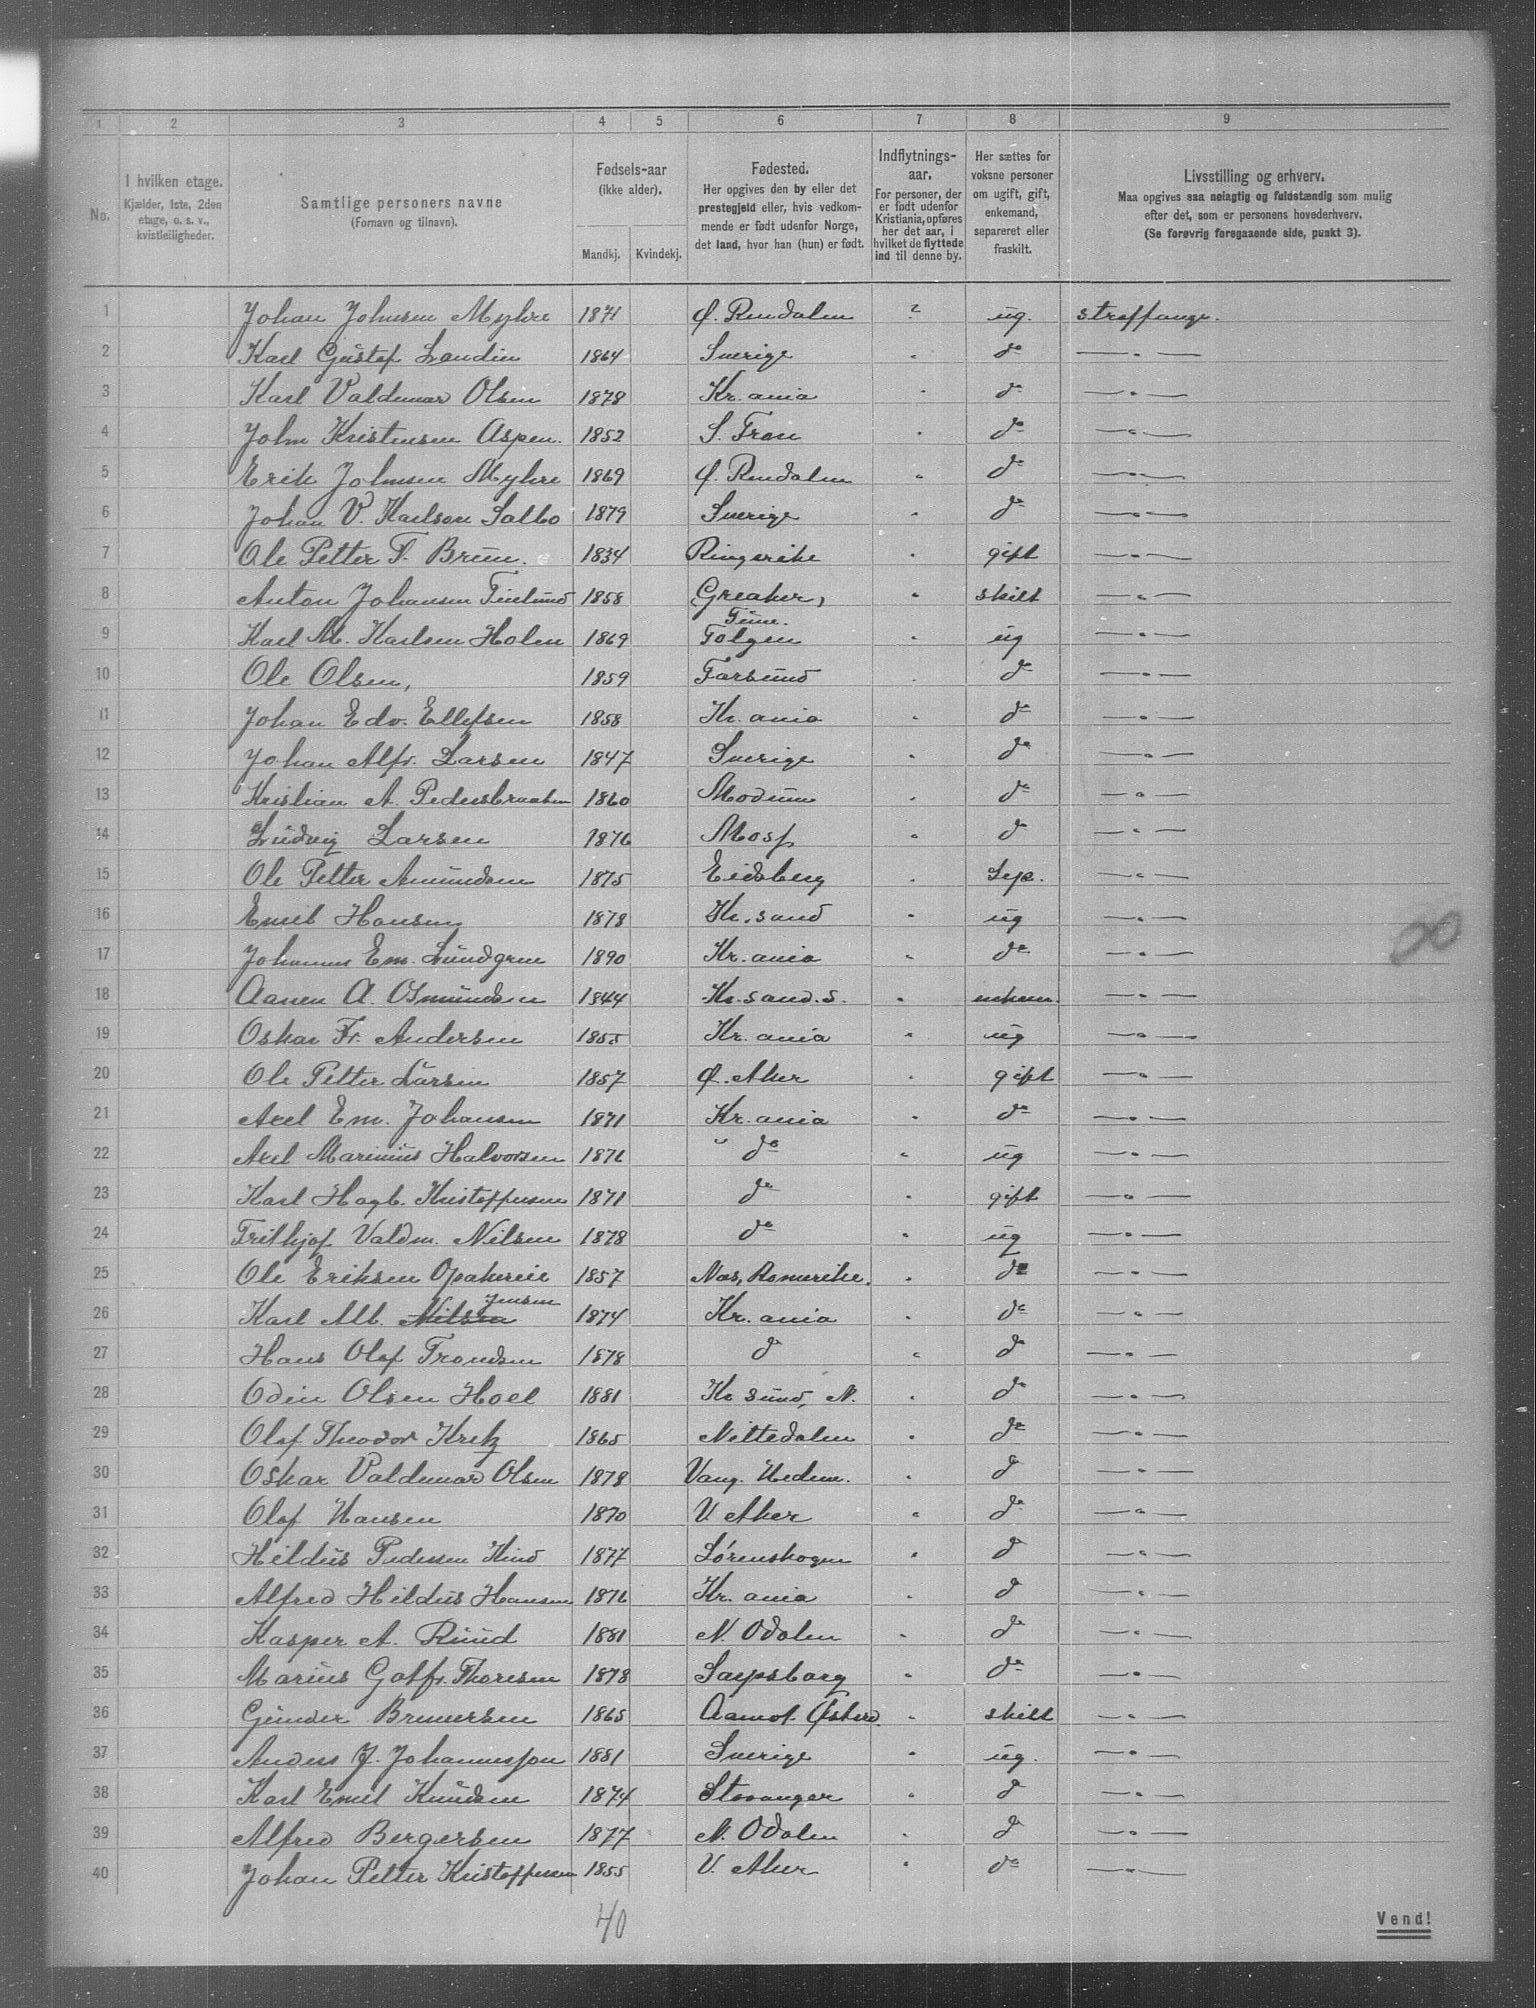 1 2 3 4 5 6 7 8 9
No. I hvilken etage. Kjælder, 1ste, 2den etage, o. s. v., kvistleiligheder.
Samtlige personers navne (Fornavn og tilnavn).
Fødsels-aar (ikke alder). Mandkj. Kvindekj.
Fødested. Her opgives den by eller det prestegjeld eller, hvis vedkommende er født udenfor Norge, det land, hvor han (hun) er født.
Indflytnings-aar. For personer, der er født udenfor Kristiania, opføres her det aar, i hvilket de flyttede ind til denne by.
Her sættes for voksne personer om ugift, gift, enkemand, separeret eller fraskilt.
Livsstilling og erhverv. Maa opgives saa nøiagtig og fuldstændig som mulig efter det, som er personens hovederhverv. (Se forøvrig foregaaende side, punkt 3).
1 Johan Johnsen Myhre 1871 Ø. Rendalen ? ug. straffange.
2 Karl Gustaf Landin 1864 Sverige " do —"—
3 Karl Valdemar Olsen 1878 Kr.ania " do —"—
4 John Kristensen Aspen. 1852 S. Fron " do —"—
5 Erik Johnsen Myhre 1869 Ø. Rendalen " do —"—
6 Johan V. Karlson Salbo 1879 Sverige " do —"—
7 Ole Petter T. Bruun. 1834 Ringerike " gift —"—
8 Anton Johansen 1858 Greaker, Tune. " skilt —"—
9 Karl M. Karlsen Holen 1869 Tolgen " ug —"—
10 Ole Olsen, 1859 Farsund " do —"—
11 Johan Edv. Ellefsen 1858 Kr.ania " do —"—
12 Johan Alfr. Larsen 1847 Sverige " do —"—
13 Kristian A. Pedersbraaten 1860 Modum " do —"—
14 Ludvig Larsen 1876 Moss " do —"—
15 Ole Petter Amundsen 1875 Eidsberg " Sep. —"—
16 Emil Hansen 1878 Kr.sand " ug —"—
17 Johannes Em. Lundgren 1890 Kr.ania " do —"—
18 Aanen A. Osmundsen 1844 Kr.sand.S. " enkem. —"—
19 Oskar Fr. Andersen 1855 Kr.ania " ug —"—
20 Ole Petter Larsen 1857 Ø. Aker " gift —"—
21 Axel Em. Johansen 1871 Kr.ania " do —"—
22 Axel Marinius Halvorsen 1876 " do " ug —"—
23 Karl Hagb. Kristoffersen 1871 do " gift —"—
24 Frithjof Valdm. Nilsen 1878 do " ug —"—
25 Ole Eriksen Opakereie 1857 Nas, Romerike. " do —"—
26 Karl Alb. Nilsen Jensen 1874 Kr.ania " do —"—
27 Hans Olaf Trondsen 1878 do " do —"—
28 Odin Olsen Hoel 1881 Kr sund, N. " do —"—
29 Olaf Theodor Kretz 1865 Nittedalen " do —"—
30 Oskar Valdemar Olsen 1878 Vang. Hedem. " do —"—
31 Olaf Hansen 1870 V. Aker " do —"—
32 Hildus Pedersen Kind 1877 Sørenskogen " do —"—
33 Alfred Hildus Hansen 1876 Kr.ania " do —"—
34 Kasper A. Ruud 1881 N. Odalen " do —"—
35 Marius Gotfr. Thoresen 1878 Sarpsborg " do —"—
36 Gunder Brenersen 1865 Aamot Østerd. " skilt —"—
37 Anders J. Johannesson 1881 Sverige " ug. —"—
38 Karl Emil Knudsen 1874 Stavanger " do —"—
39 Alfred Bergersen 1877 N. Odalen " do —"—
40 Johan Petter Kristoffersen 1855 V. Aker " do —"—
40
Vend!